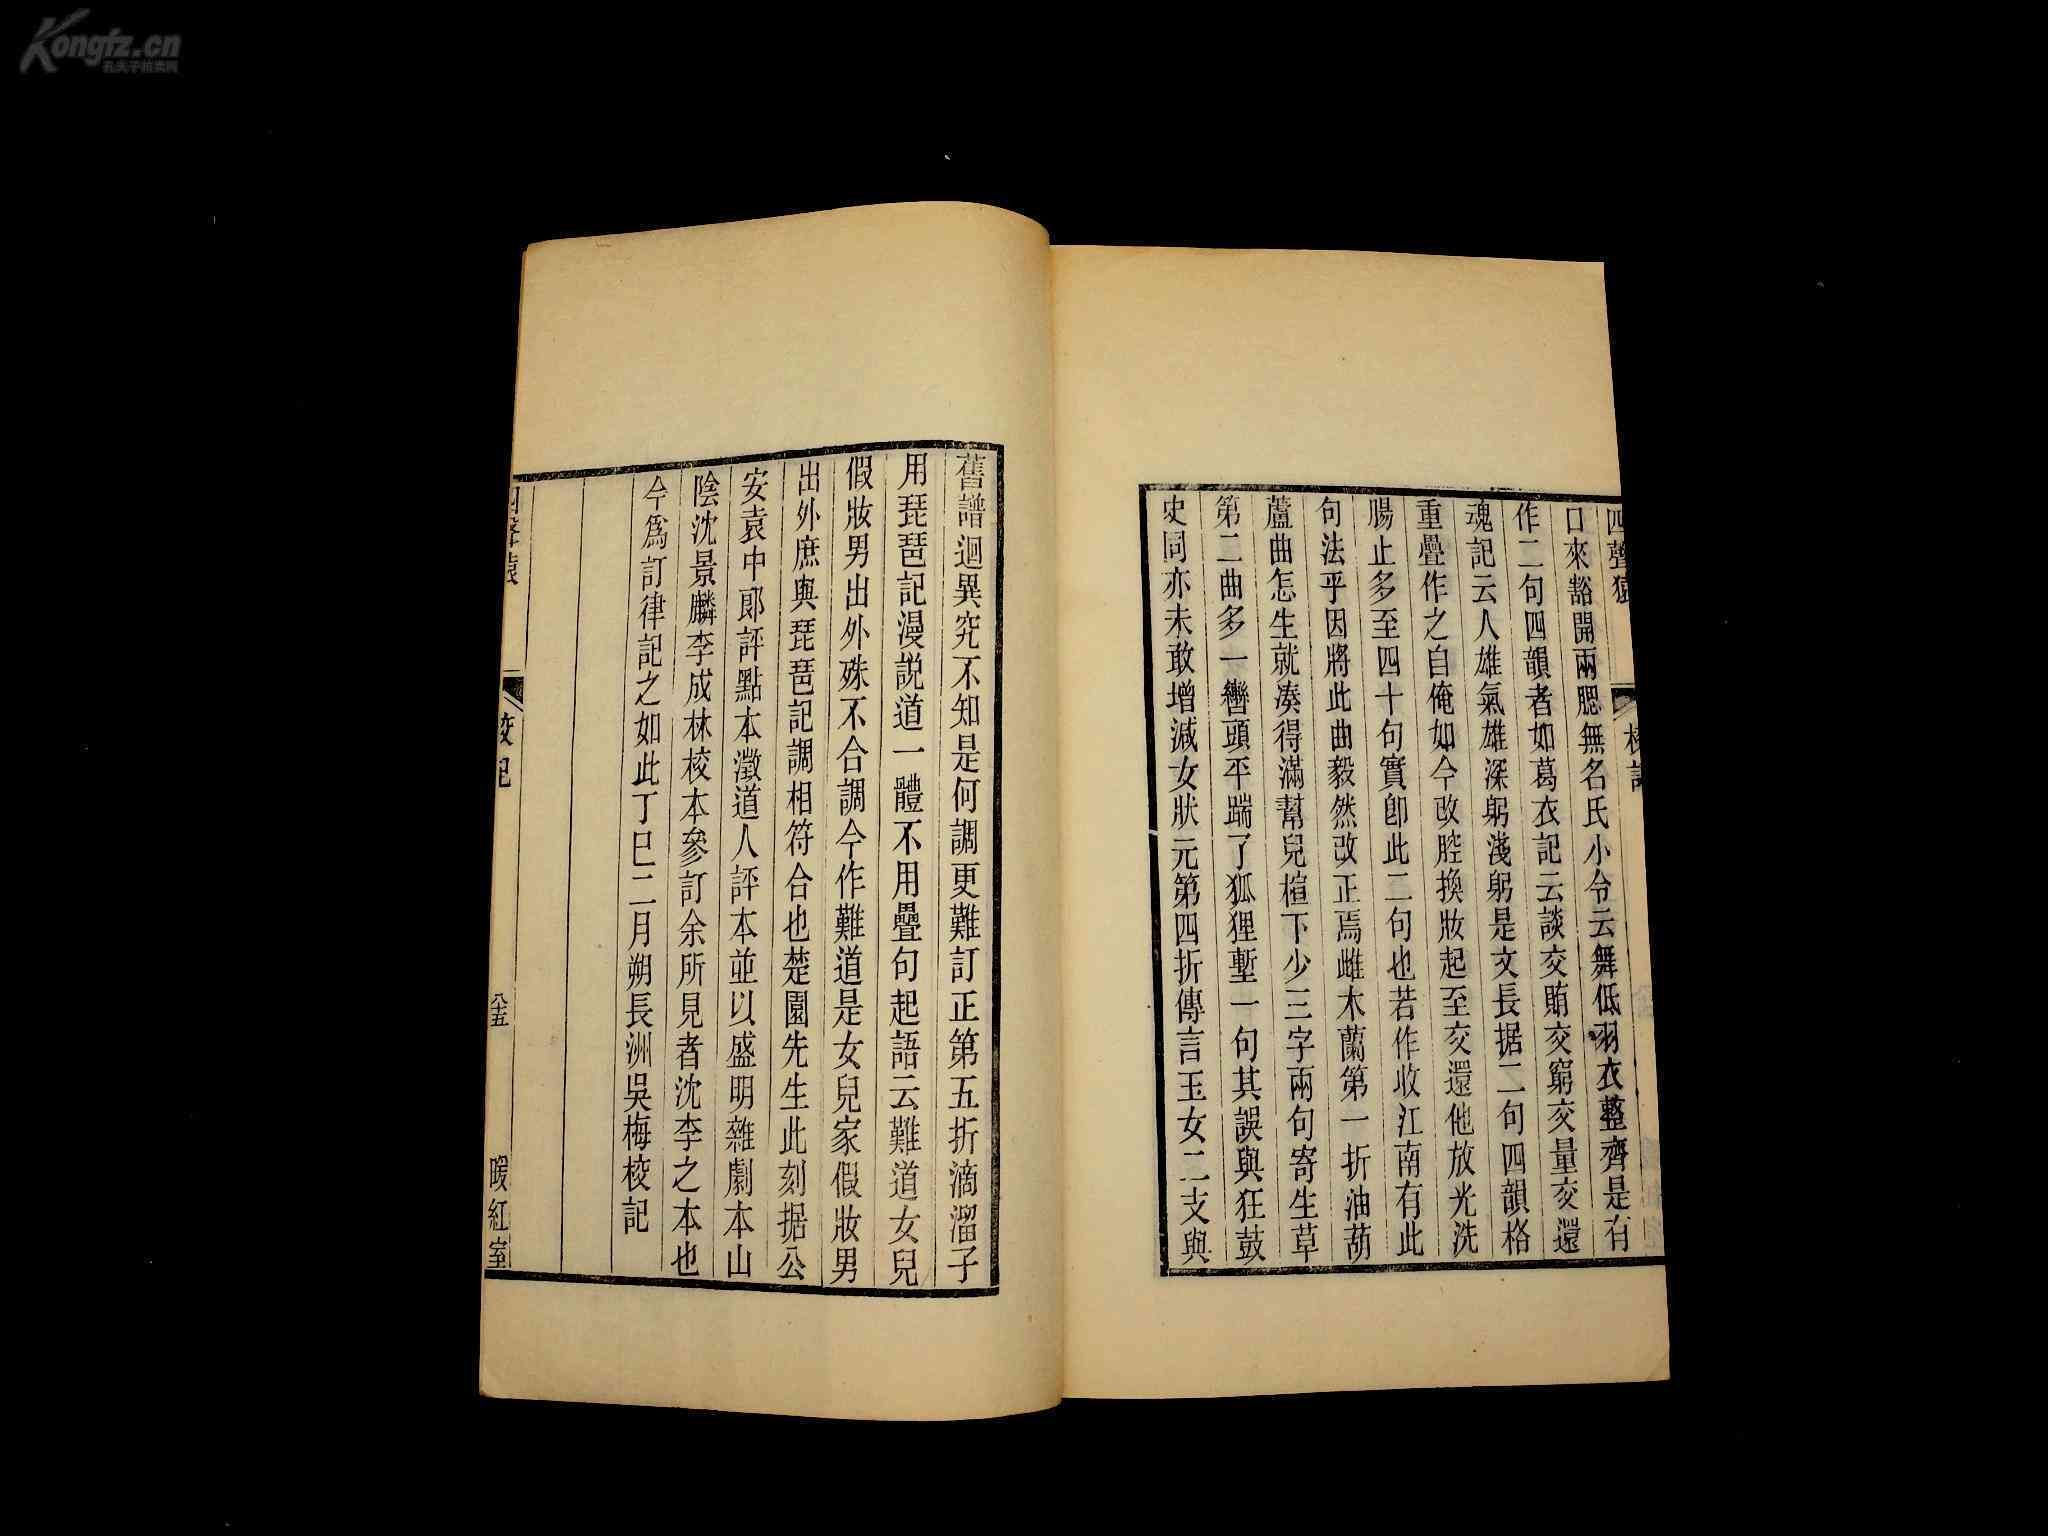 Kongfz.cn
孔夫子拍卖网
四聲猿
校記
口來豁開兩腮無名氏小令云舞低羽衣整齊是有
作二句四韻者如葛衣記云談交賄交窮交量交還
魂記云人雄氣雄深躬淺躬是文長据二句四韻格
重疊作之自俺如今改腔換妝起至交還他放光洗
腸止多至四十句實卽此二句也若作收江南有此
句法乎因將此曲毅然改正焉雌木蘭第一折油葫
蘆曲怎生就湊得滿幫兒楦下少三字兩句寄生草
第二曲多一轡頭平踹了狐狸塹一句其誤與狂鼓
史同亦未敢增減女狀元第四折傳言玉女二支與
舊譜迥異究不知是何調更難訂正第五折滴溜子
用琵琶記漫說道一體不用疊句起語云難道女兒
假妝男出外殊不合調今作難道是女兒家假妝男
出外庶與琵琶記調相符合也楚園先生此刻据公
安袁中郎評點本澂道人評本並以盛明雜劇本山
陰沈景麟李成林校本參訂余所見者沈李之本也
今爲訂律記之如此丁巳二月朔長洲吳梅校記
四聲猿
校記
八十五
暖紅室